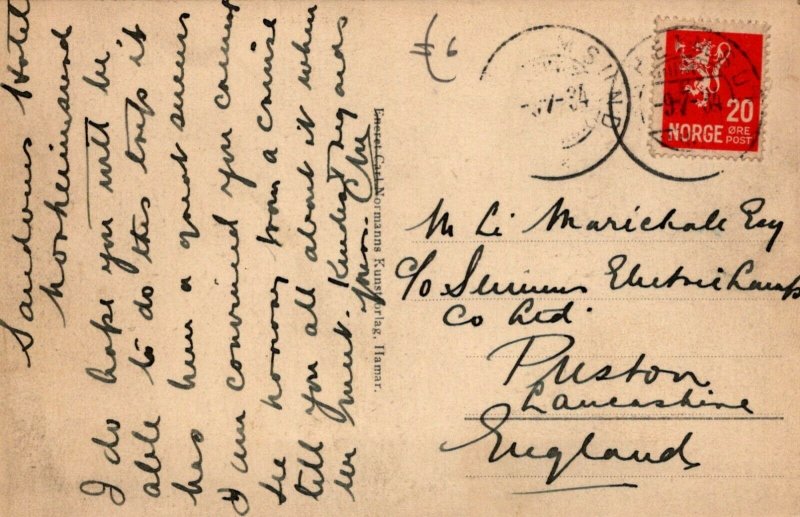 Sandvens Hotel
Norheimsund
I do hope you will be
able to do this trip it
has been a great success
I am convinced you cannot
see Norway from a cruise
tell you all about it when
we meet. Kindest regards
Eneret Carl Normanns Kunstforlag, Hamar.
#6
-9.7-34
9.7-34
20
NORGE ØRE
POST
M Li Marichale Esq
c/o Siemens Electric Lamps
Co Ltd.
Preston
Lancashire
England